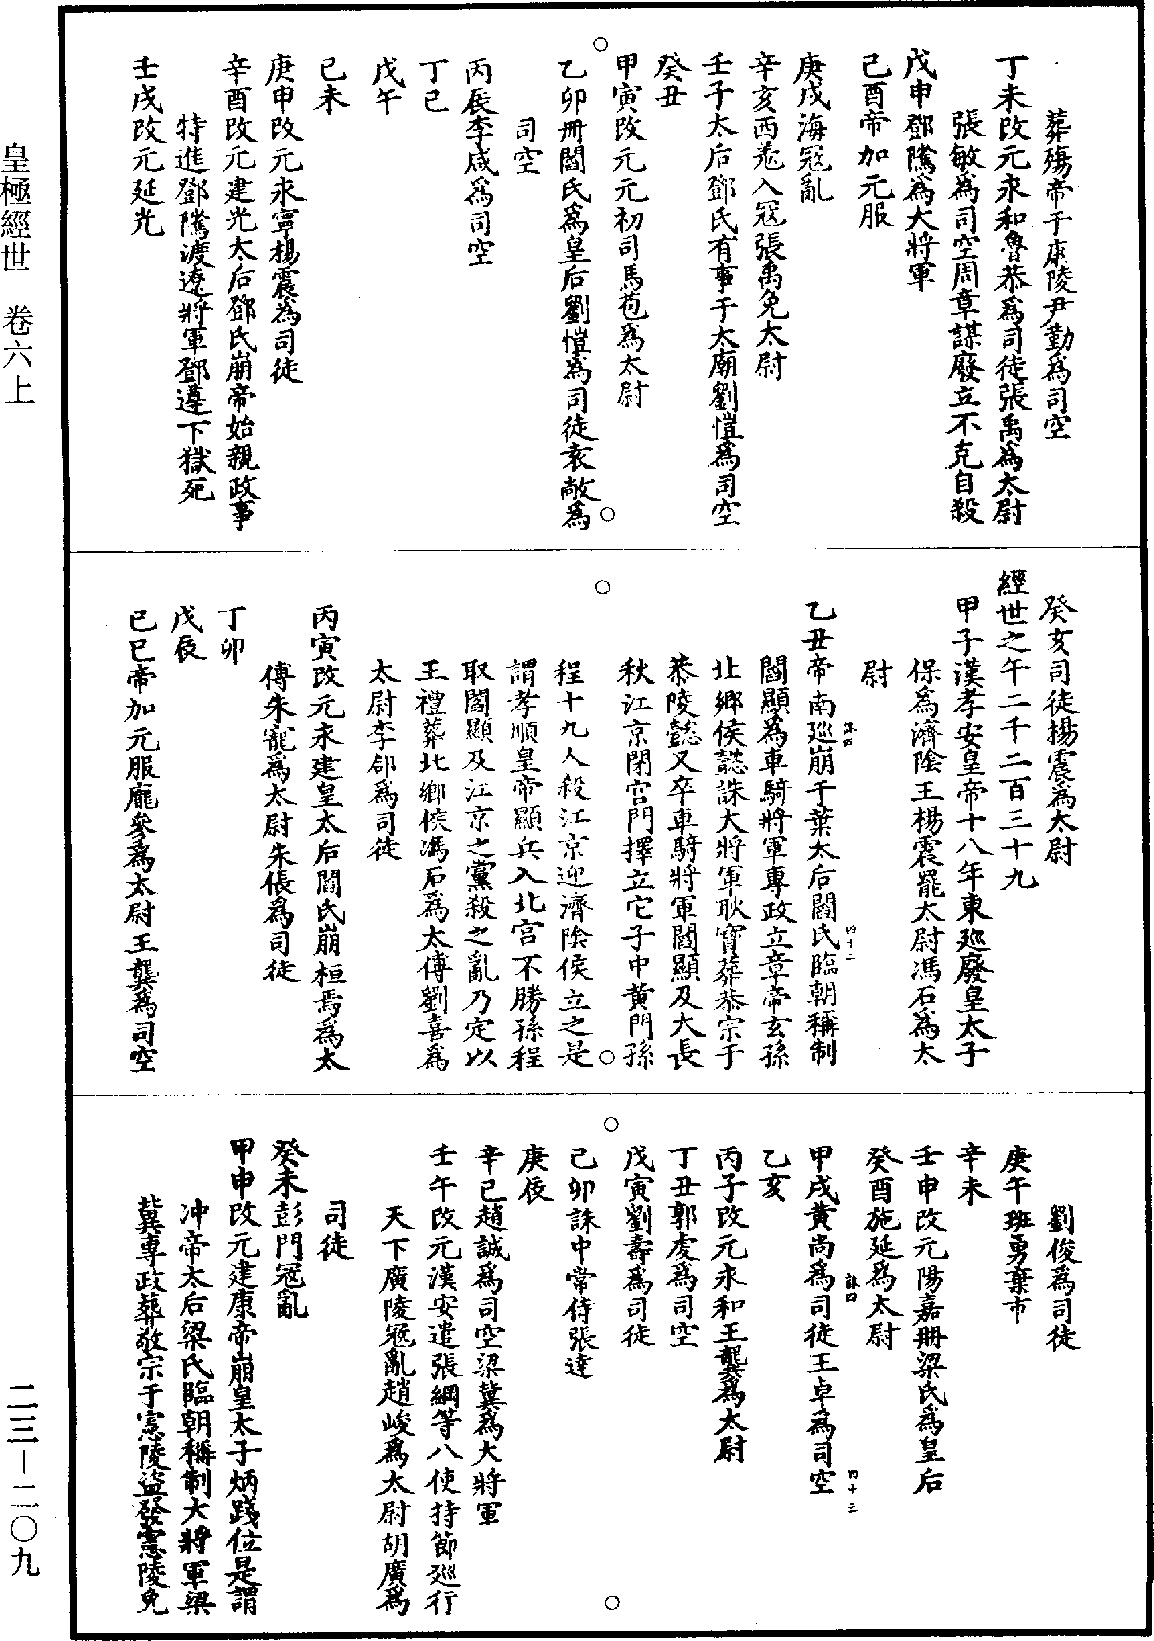 葬殤帝于康陵尹勤為司空
丁未改元永和魯恭為司徒張禹為太尉
張敏為司空周章謀廢立不克自殺
戊申鄧騭為大將軍
己酉帝加元服
庚戌海冦亂
辛亥西羌入冦張禹免太尉
壬子太后鄧氏有事于太廟劉愷為司空
癸丑
甲寅改元元初司馬苞為太尉
乙卯冊閻氏為皇后劉愷為司徒袁敞為
司空
丙辰李咸為司空
丁巳
戊午
己未
庚申改元永寧楊震為司徒
辛酉改元建光太后鄧氏崩帝始親政事
特進鄧騭渡遼將軍鄧遵下獄死
壬戌改元延光
癸亥司徒楊震為太尉
經世之午二千二百三十九
甲子漢孝安皇帝十八年東廵廢皇太子
保為濟陰王楊震罷太尉馮石為太
尉
乙丑帝南廵崩于葉太后閻氏臨朝稱制
閻顯為車騎將軍專政立章帝玄孫
北鄉侯懿誅大將軍耿寶葬恭宗于
恭陵懿又卒車騎將軍閻顯及大長
秋江京閉宫門擇立它子中黄門孫
程十九人殺江京迎濟陰侯立之是
謂孝順皇帝顯兵入北宫不勝孫程
取閻顯及江京之黨殺之亂乃定以
王禮葬北鄉侯馮石為太傅劉喜為
太尉李郃為司徒
丙寅改元永建皇太后閻氏崩桓焉為太
傅朱寵為太尉朱倀為司徒
丁卯
戊辰
己巳帝加元服龐參為太尉王龔為司空
劉俊為司徒
庚午班勇棄市
辛未
壬申改元陽嘉冊梁氏為皇后
癸酉施延為太尉
甲戌黄尚為司徒王卓為司空
乙亥
丙子改元永和王龔為太尉
丁丑郭虔為司空
戊寅劉壽為司徒
己卯誅中常侍張逵
庚辰
辛巳趙誠為司空梁冀為大將軍
壬午改元漢安遣張綱等八使持節廵行
天下廣陵冦亂趙峻為太尉胡廣為
司徒
癸未彭門冦亂
甲申改元建康帝崩皇太子炳踐位是謂
冲帝太后梁氏臨朝稱制大將軍梁
冀專政葬敬宗于憲陵盜發憲陵免
皇極經世　卷六上
二三－二〇九
四十二
四十三